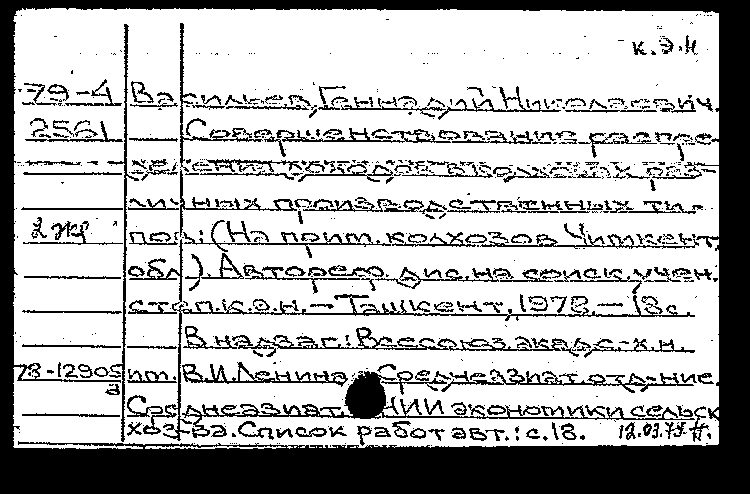 К.Э.Н
79-4 Васильев, Геннадий Николаевич.
2561 Совершенствование распре-
деления доходов в колхозах раз-
личных производственных ти-
2 экз пов: (На прим. колхозов Чимкент.
обл.). Автореф. дис. на соиск. учен.
степ. к.э.н. — Ташкент, 1978. — 18 с.
В надзаг.: Всесоюз. акад. с.-х. н.
78-12905 им. В.И. Ленина. Среднеазиат. отд-ние.
а
Среднеазиат. НИИ экономики сельск
хоз-ва. Список работ авт.: с. 18. 12.03.79